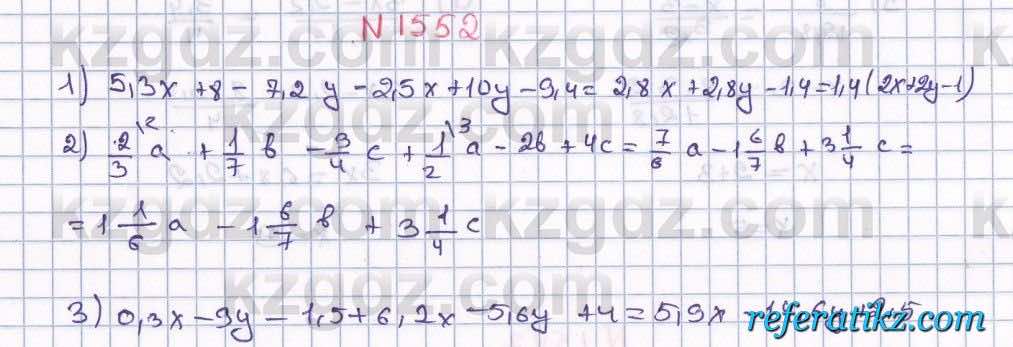 N 1552
1) 5,3x + 8 - 7,2y - 2,5x + 10y - 9,4 = 2,8x + 2,8y - 1,4 = 1,4(2x+2y-1)
2) 2/3\2 a + 1/7 b - 3/4 c + 1/2\3 a - 2b + 4c = 7/6 a - 1 6/7 b + 3 1/4 c =
= 1 1/6 a - 1 6/7 b + 3 1/4 c
3) 0,3x - 9y - 1,5 + 6,2x - 5,6y + 4 = 5,9x
kzgdz.com
referatikz.com